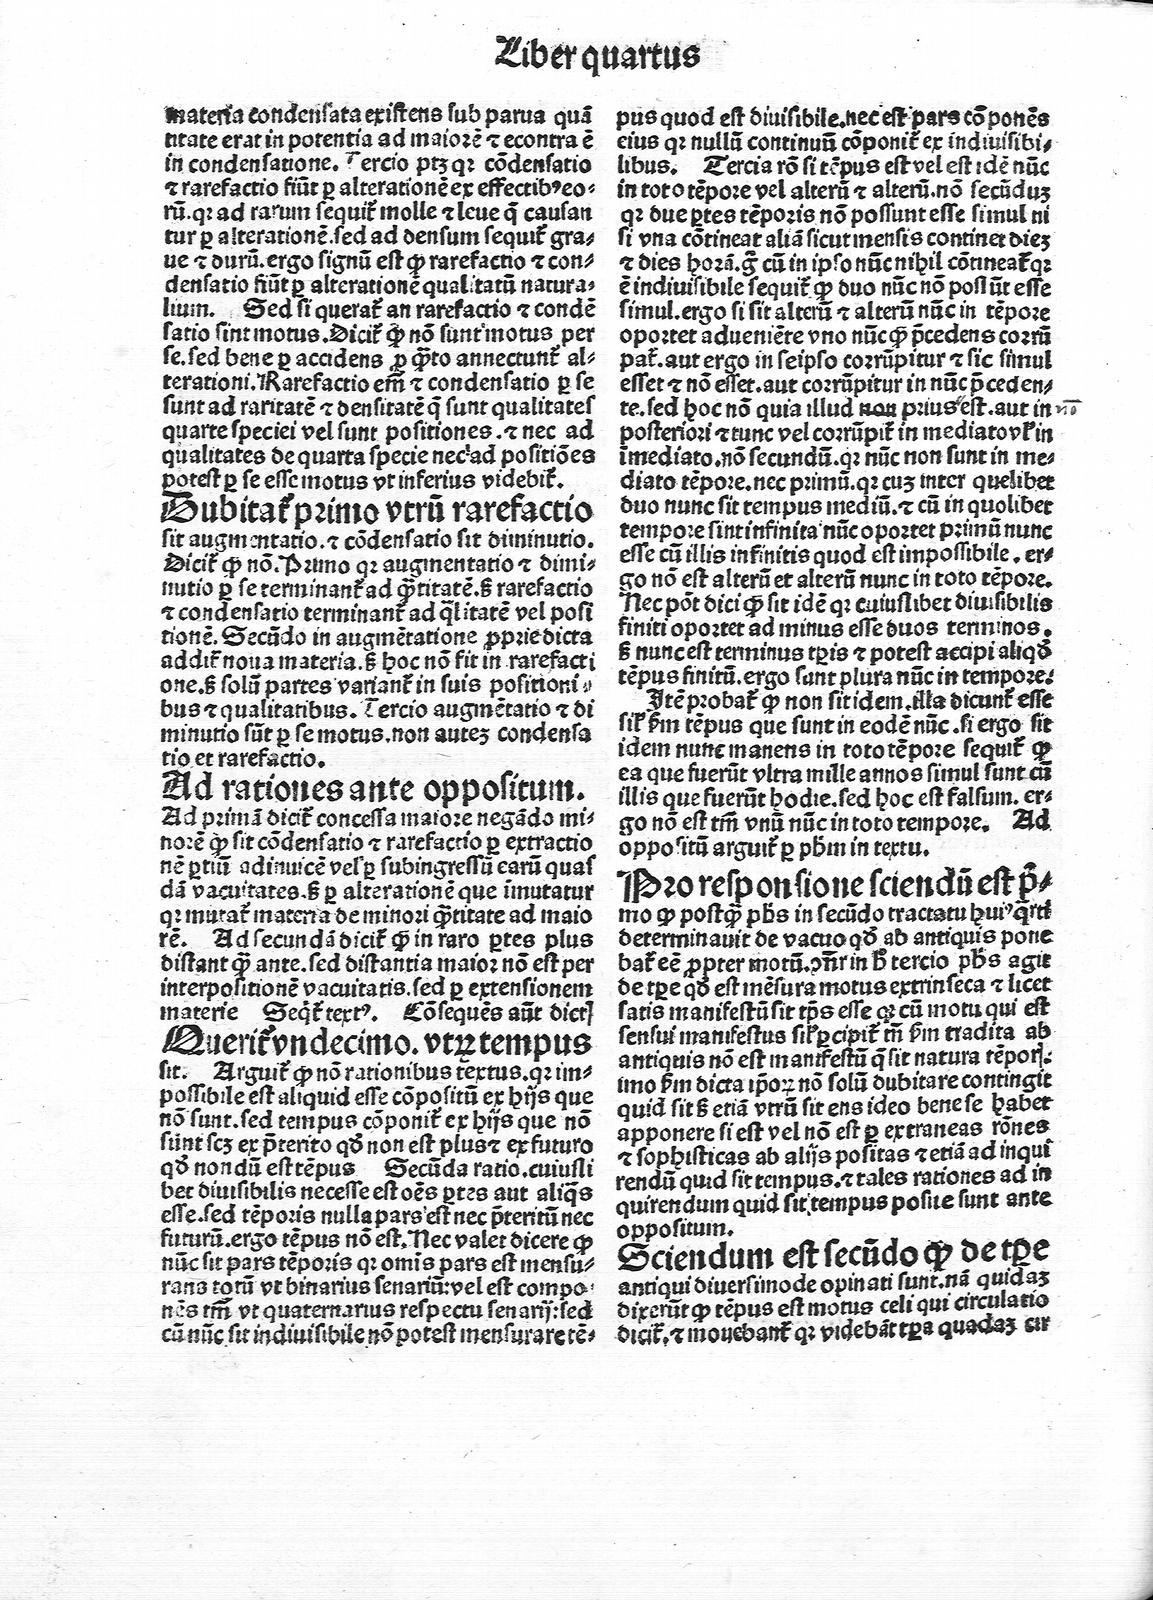 Liber quartus
materia condensata existens sub parua quã
titate erat in potentia ad maiorẽ ⁊ econtra ẽ
in condensatione. Tercio ptꝫ qꝛ cõdensatio
⁊ rarefactio fiũt ꝑ alterationẽ ex effectibꝰ eo⸗
rũ. qꝛ ad rarum sequit᷑ molle ⁊ leue q̃ causan
tur ꝑ alterationẽ. sed ad densum sequit᷑ gra⸗
ue ⁊ durũ. ergo signũ est ꝙ rarefactio ⁊ con⸗
densatio fiũt ꝑ alterationẽ qualitatũ natura⸗
lium. Sed si querat᷑ an rarefactio ⁊ condẽ
satio sint motus. Dicit᷑ ꝙ nõ sunt motus per
se. sed bene ꝑ accidens ꝓ ꝙ̃to annectunt᷑ al⸗
terationi. Rarefactio em̃ ⁊ condensatio ꝑ se
sunt ad raritatẽ ⁊ densitatẽ q̃ sunt qualitates
quarte speciei vel sunt positiones. ⁊ nec ad
qualitates de quarta specie nec ad positiões
potest ꝑ se esse motus vt inferius videbit᷑.
Dubitat᷑ primo vtrũ rarefactio
sit augmentatio. ⁊ cõdensatio sit diminutio.
Dicit᷑ ꝙ nõ. Primo qꝛ augmentatio ⁊ dimi⸗
nutio ꝑ se terminant᷑ ad ꝙ̃titatẽ. ß rarefactio
⁊ condensatio terminant᷑ ad q̃litatẽ vel posi
tionẽ. Secũdo in augmẽtatione ꝓprie dicta
addit᷑ noua materia. ß hoc nõ fit in rarefacti
one. ß solũ partes variant᷑ in suis positioni⸗
bus ⁊ qualitatibus. Tercio augmẽtatio ⁊ di
minutio sũt ꝑ se motus. non auteꝫ condensa
tio et rarefactio.
Ad rationes ante oppositum.
Ad primã dicit᷑ concessa maiore negãdo mi⸗
norẽ ꝙ sit cõdensatio ⁊ rarefactio ꝑ extractio
nẽ ꝑtiũ adinuicẽ vel ꝑ subingressũ earũ quas
dã vacuitates. ß ꝑ alterationẽ que im̃utatur
qꝛ mutat᷑ materia de minori ꝙ̃titate ad maio
rẽ. Ad secundã dicit᷑ ꝙ in raro ꝑtes plus
distant ꝙ̃ ante. sed distantia maior nõ est per
interpositionẽ vacuitatis. sed ꝑ extensionem
materie Seqt᷑ textꝰ. Cõsequẽs aũt dictꝭ
Querit᷑ vndecimo. vtꝝ tempus
sit. Arguit᷑ ꝙ nõ rationibus textus. qꝛ im⸗
possibile est aliquid esse cõpositũ ex hijs que
nõ sunt. sed tempus cõponit᷑ ex hijs que nõ
sunt scꝫ ex p̃terito qđ non est plus ⁊ ex futuro
qđ nondũ est tẽpus Secũda ratio. cuiusli
bet diuisibilis necesse est oẽs ꝑtes aut aliq̃s
esse. sed tẽporis nulla pars est nec p̃teritũ nec
futurũ. ergo tẽpus nõ est. Nec valet dicere ꝙ
nũc sit pars tẽporis qꝛ omis pars est mensu⸗
rans totũ vt binarius senariũ: vel est compo⸗
nẽs tm̃ vt quaternarius respectu senarij: sed
cũ nũc sit indiuisibile nõ potest mensurare tẽ⸗
pus quod est diuisibile. nec est pars cõponẽs
eius qꝛ nullũ continuũ cõponit᷑ ex indiuisibi⸗
libus. Tercia rõ si tẽpus est vel est idẽ nũc
in toto tẽpore vel alterũ ⁊ alterũ. nõ secũduꝫ
qꝛ due ꝑtes tẽporis nõ possunt esse simul ni
si vna cõtineat aliã sicut mensis continet dieꝫ
⁊ dies horã. g̃ cũ in ipso nũc nihil cõtineat᷑ qꝛ
ẽ indiuisibile sequit᷑ ꝙ duo nũc nõ possũt esse
simul. ergo si sit alterũ ⁊ alterũ nũc in tẽpore
oportet adueniẽte vno nũc ꝙ p̃cedens corrũ
pat᷑. aut ergo in seipso corrũpitur ⁊ sic simul
esset ⁊ nõ esset. aut corrũpitur in nũc p̃ceden⸗
te. sed hoc nõ quia illud non prius est. aut in
posteriori ⁊ tunc vel corrũpit᷑ in mediato vł in
im̃ediato. nõ secundũ. qꝛ nũc non sunt in me⸗
diato tẽpore. nec primũ. qꝛ cuꝫ inter quelibet
duo nunc sit tempus mediũ. ⁊ cũ in quolibet
tempore sint infinita nũc oportet primũ nunc
esse cũ illis infinitis quod est impossibile. er⸗
go nõ est alterũ et alterũ nunc in toto tẽpore.
Nec põt dici ꝙ sit idẽ qꝛ cuiuslibet diuisibilis
finiti oportet ad minus esse duos terminos.
ß nunc est terminus tꝑis ⁊ potest accipi aliqđ
tẽpus finitũ. ergo sunt plura nũc in tempore:
Itẽ probat᷑ ꝙ non sit idem. illa dicunt᷑ esse
sił ẜm tẽpus que sunt in eodẽ nũc. si ergo sit
idem nunc manens in toto tẽpore sequit᷑ ꝙ
ea que fuerũt vltra mille annos simul sunt cũ
illis que fuerũt hodie. sed hoc est falsum. er⸗
go nõ est tm̃ vnũ nũc in toto tempore. Ad
oppositũ arguit᷑ ꝑ pħm in textu.
Pro responsione sciendũ est p̃⸗
mo ꝙ postꝙ̃ pħs in secũdo tractatu huiꝰ q̃rti
determinauit de vacuo qđ ab antiquis pone
bat᷑ eẽ ꝓpter motũ. ꝯñr in ħ tercio pħs agit
de tꝑe qđ est mẽsura motus extrinseca ⁊ licet
satis manifestũ sit tꝑs esse qꝛ cũ motu qui est
sensui manifestus sił ꝑcipit᷑ tñ ẜm tradita ab
antiquis nõ est manifestũ q̃ sit natura tẽporꝭ:
imo ẜm dicta ip̃oꝝ nõ solũ dubitare contingit
quid sit ß etiã vtrũ sit ens ideo bene se habet
apponere si est vel nõ est ꝑ extraneas rõnes
⁊ sophisticas ab alijs positas ⁊ etiã ad inqui
rendũ quid sit tempus. ⁊ tales rationes ad in
quirendum quid sit tempus posite sunt ante
oppositum.
Sciendum est secũdo ꝙ de tꝑe
antiqui diuersimode opinati sunt. nã quidaꝫ
dixerũt ꝙ tẽpus est motus celi qui circulatio
dicit᷑. ⁊ mouebant᷑ qꝛ videbãt tꝑa quadaꝫ cir